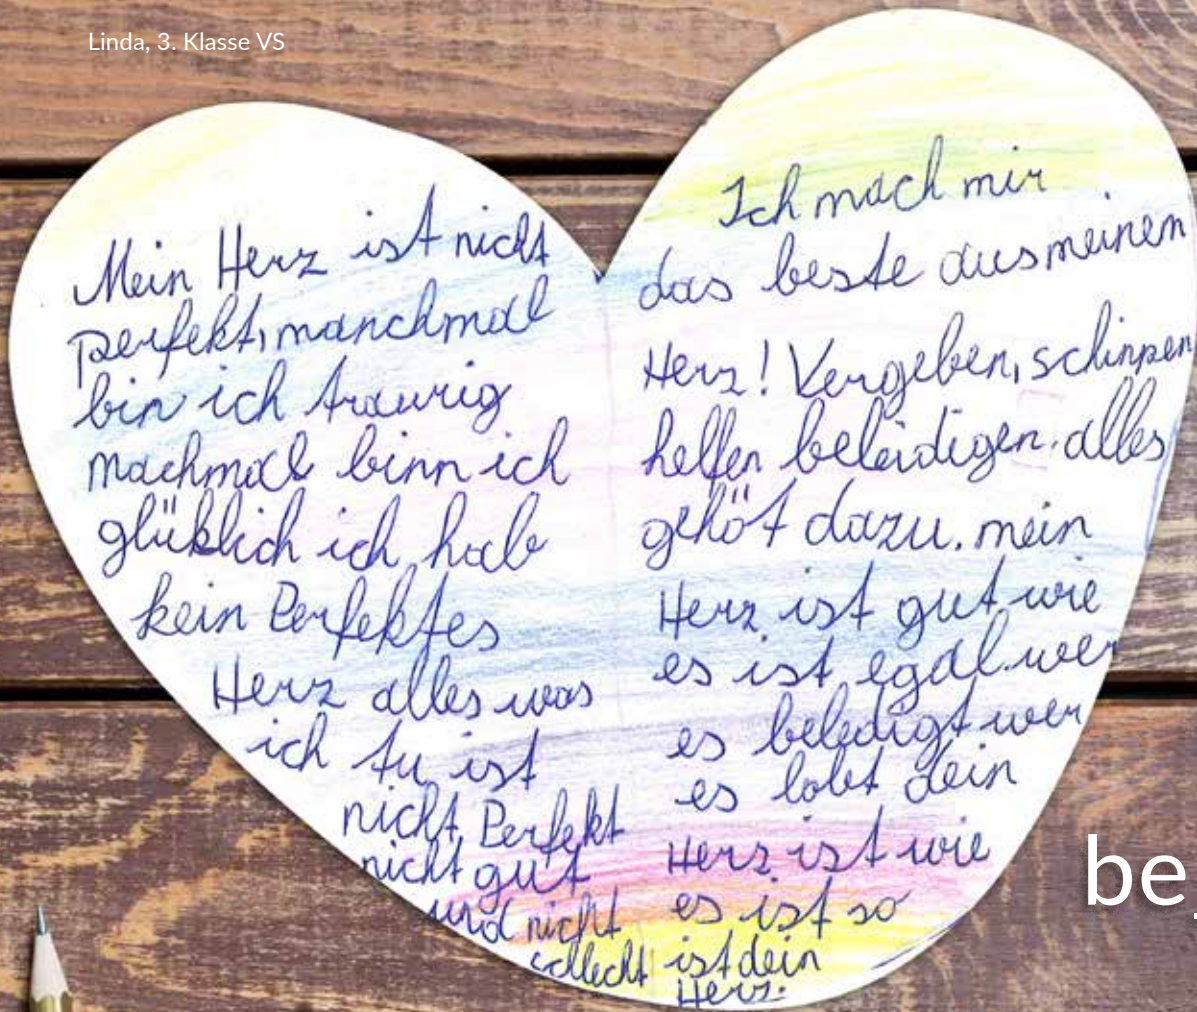 Linda, 3. Klasse VS
Mein Herz ist nicht
perfekt, manchmal
bin ich traurig
machmal binn ich
glüklich ich hab
kein Perfektes
Herz alles was
ich tu ist
nicht Perfekt
nicht gut
und nicht
schlecht
Ich mach mir
das beste aus meinem
Herz! Vergeben, schinpen
helfen beleidigen. alles
gehöt dazu. mein
Herz ist gut wie
es ist egal wer
es beledigt wer
es lobt dein
Herz ist wie
es ist so
ist dein
Herz.
be